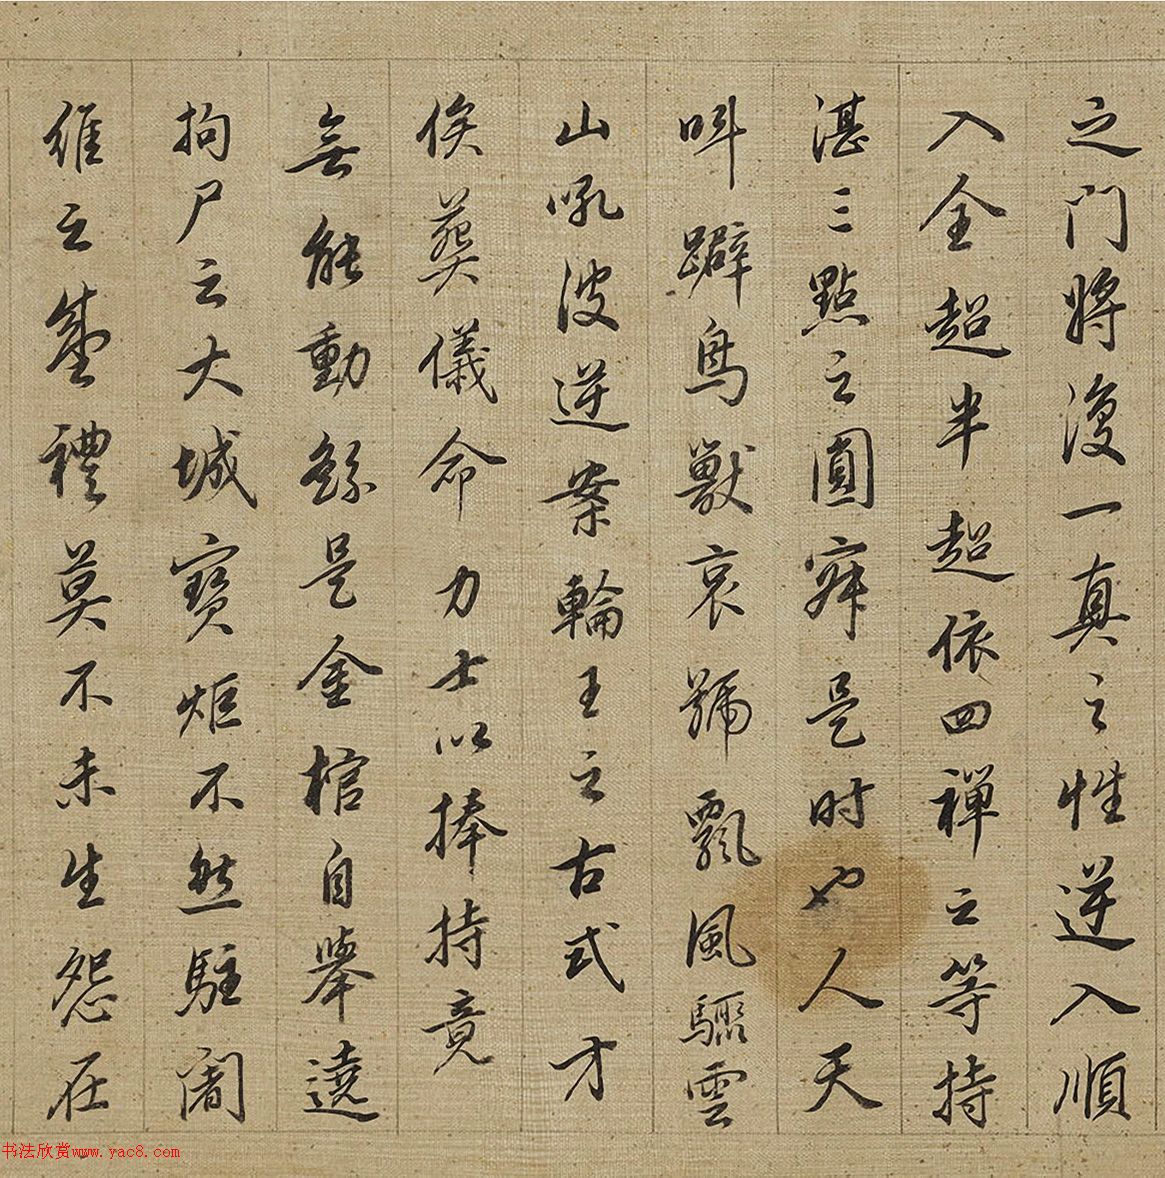 之门将復一真之性逆入順
入全超半超依四禅之等持
湛三點之圓寂是时也人天
叫躃鳥獸哀號飄風驟雲
山吼波逆案輪王之古式才
俟葬儀命力士以捧持竟
無能動繇是金棺自舉遶
拘尸之大城寶炬不然駐闍
維之盛禮莫不未生怨在
书法欣赏www.yac8.com